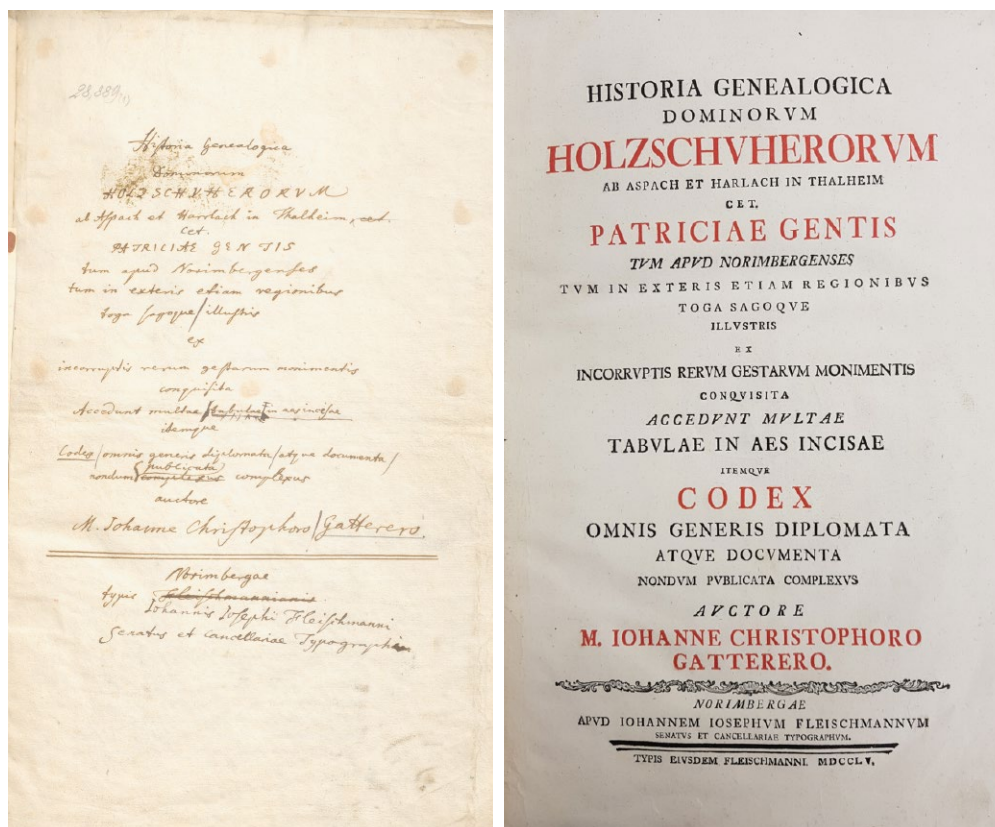 28,889(1)
Historia Genealogica
Dominorum
HOLZSCHVHERORVM
ab Aspach et Harrlach in Thalheim, cet.
cet.
PATRICIAE GENTIS
tum apud Norimbergenses
tum in exteris etiam regionibus
toga sagoque illustris
ex
incorruptis rerum gestarum monimentis
conquisita
Accedunt multae tabulae in aes incisae
itemque
Codex omnis generis diplomata atque documenta
publicata
nondum complexus
auctore
M. Iohanne Christophoro Gatterero.
Norimbergae
typis Fleischmannianis
Iohannis Iosephi Fleischmanni
Senatus et Cancellariae Typographi
HISTORIA GENEALOGICA
DOMINORVM
HOLZSCHVHERORVM
AB ASPACH ET HARLACH IN THALHEIM
CET.
PATRICIAE GENTIS
TVM APVD NORIMBERGENSES
TVM IN EXTERIS ETIAM REGIONIBVS
TOGA SAGOQVE
ILLVSTRIS
EX
INCORRVPTIS RERVM GESTARVM MONIMENTIS
CONQVISITA
ACCEDVNT MVLTAE
TABVLAE IN AES INCISAE
ITEMQVE
CODEX
OMNIS GENERIS DIPLOMATA
ATQVE DOCVMENTA
NONDVM PVBLICATA COMPLEXVS
AVCTORE
M. IOHANNE CHRISTOPHORO
GATTERERO.
NORIMBERGAE
APVD IOHANNEM IOSEPHVM FLEISCHMANNVM
SENATVS ET CANCELLARIAE TYPOGRAPHVM.
TYPIS EIVSDEM FLEISCHMANNI. MDCCLV.